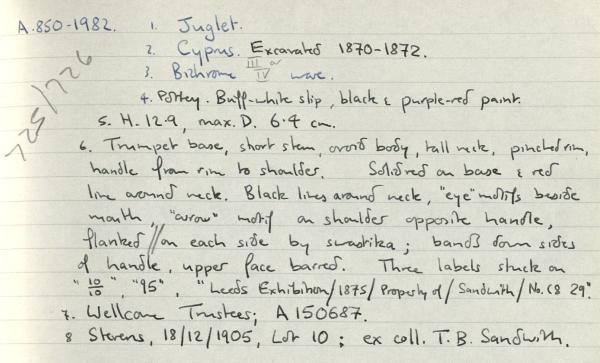 A.850-1982. 1. Juglet.
2. Cyprus. Excavated 1870-1872.
3. Bichrome III or IV ware.
4. Pottery. Buff-white slip, black & purple-red paint.
725/726
5. H. 12.9, max. D. 6.4 cm.
6. Trumpet base, short stem, ovoid body, tall neck, pinched rim,
handle from rim to shoulder. Solid red on base & red
line around neck. Black lines around neck, "eye" motifs beside
mouth, "arrow" motif on shoulder opposite handle,
flanked // on each side by swastika; bands down sides
of handle, upper face barred. Three labels stuck on
"10/10", "95", "Leeds Exhibition/1875/Property of/Sandwith/No. C8 29".
7. Wellcome Trustees; A 150687.
8 Stevens, 18/12/1905, Lot 10; ex coll. T. B. Sandwith.